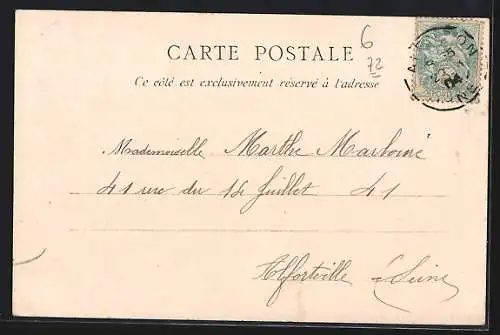 6
72
CARTE POSTALE
Ce côté est exclusivement réservé à l'adresse
Mademoiselle Marthe
41 rue du 14 Juillet 41
Alfortville Seine